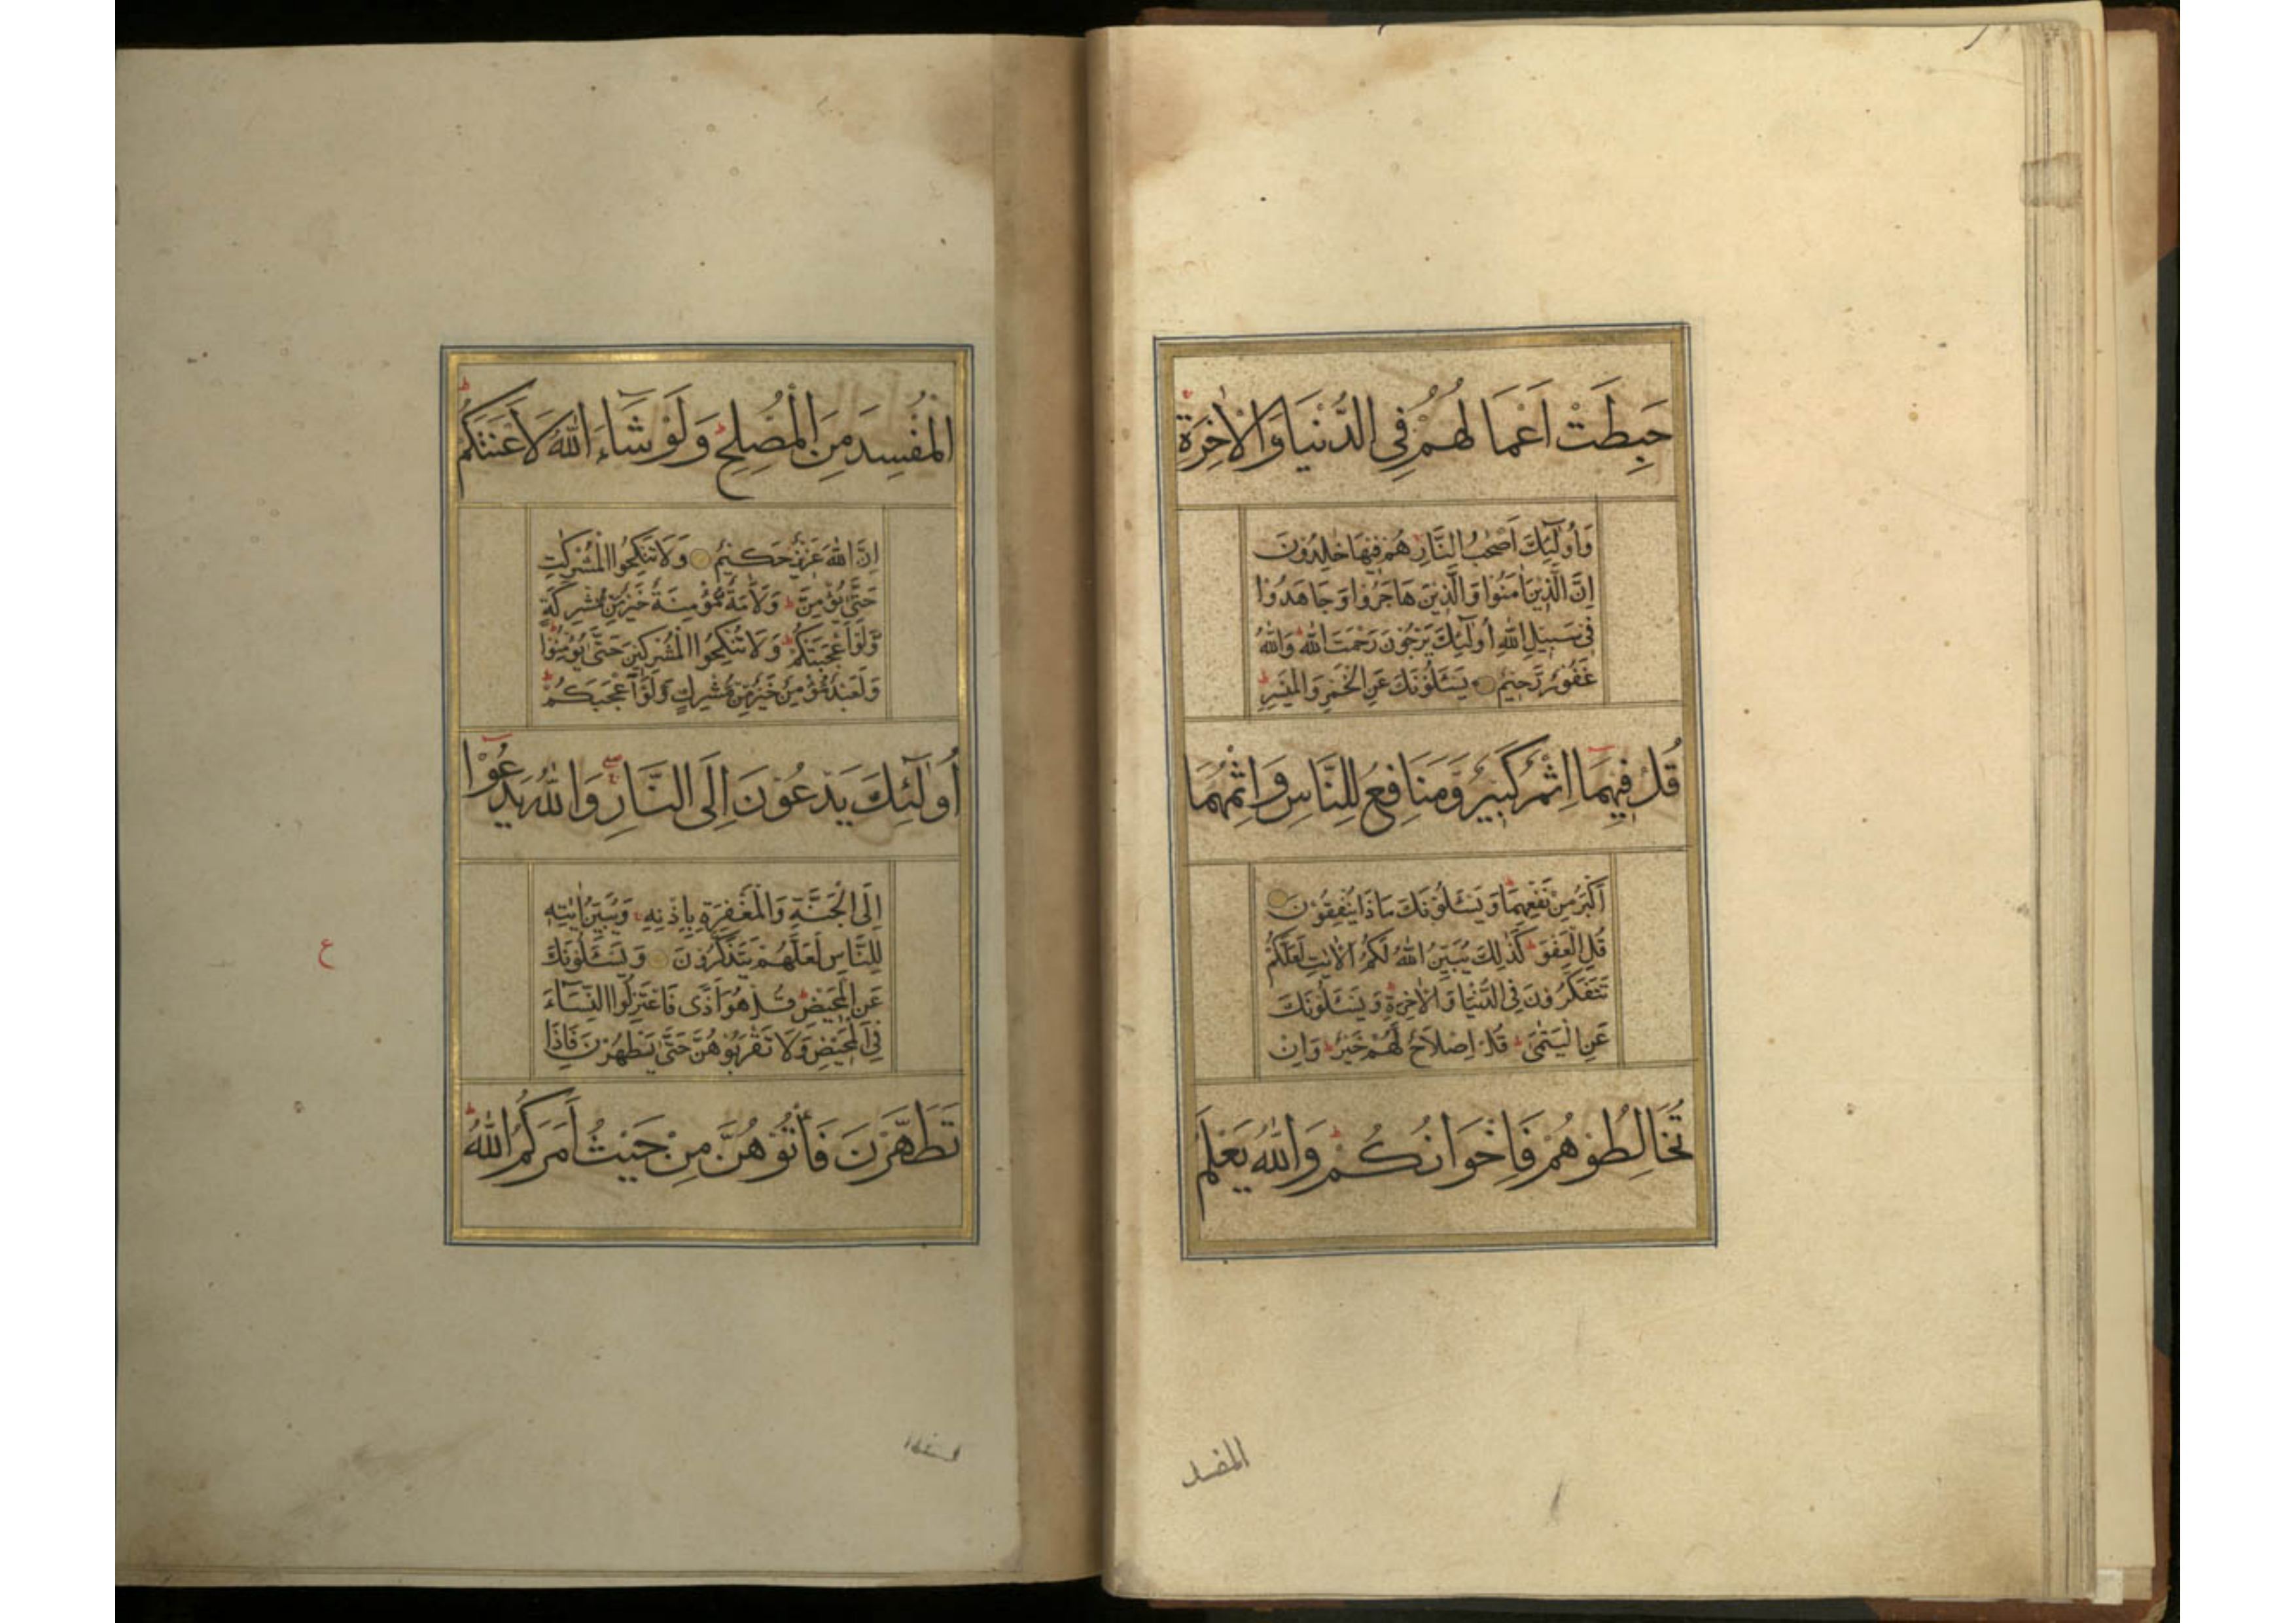 حَبِطَتْ اَعْمَالُهُمْ فِى الدُّنْيَا وَالْاٰخِرَةِ ۚ
وَاُولٰٓئِكَ اَصْحٰبُ النَّارِ هُمْ فِيْهَا خٰلِدُوْنَ
اِنَّ الَّذِيْنَ اٰمَنُوْا وَالَّذِيْنَ هَاجَرُوْا وَجَاهَدُوْا
فِىْ سَبِيْلِ اللّٰهِ اُولٰٓئِكَ يَرْجُوْنَ رَحْمَتَ اللّٰهِ ؕ وَاللّٰهُ
غَفُوْرٌ رَّحِيْمٌ ۝ يَسْئَلُوْنَكَ عَنِ الْخَمْرِ وَالْمَيْسِرِ ؕ
قُلْ فِيْهِمَا اِثْمٌ كَبِيْرٌ وَّمَنَافِعُ لِلنَّاسِ وَاِثْمُهُمَا
اَكْبَرُ مِنْ نَفْعِهِمَا ؕ وَيَسْئَلُوْنَكَ مَاذَا يُنْفِقُوْنَ ۝
قُلِ الْعَفْوَ ؕ كَذٰلِكَ يُبَيِّنُ اللّٰهُ لَكُمُ الْاٰيٰتِ لَعَلَّكُمْ
تَتَفَكَّرُوْنَ فِى الدُّنْيَا وَالْاٰخِرَةِ ؕ وَيَسْئَلُوْنَكَ
عَنِ الْيَتٰمٰى ؕ قُلْ اِصْلَاحٌ لَّهُمْ خَيْرٌ ؕ وَاِنْ
تُخَالِطُوْهُمْ فَاِخْوَانُكُمْ ؕ وَاللّٰهُ يَعْلَمُ
المفسد
الْمُفْسِدَ مِنَ الْمُصْلِحِ ؕ وَلَوْ شَآءَ اللّٰهُ لَاَعْنَتَكُمْ ؕ
اِنَّ اللّٰهَ عَزِيْزٌ حَكِيْمٌ ۝ وَلَا تَنْكِحُوا الْمُشْرِكٰتِ
حَتّٰى يُؤْمِنَّ ؕ وَلَاَمَةٌ مُّؤْمِنَةٌ خَيْرٌ مِّنْ مُّشْرِكَةٍ
وَّلَوْ اَعْجَبَتْكُمْ ؕ وَلَا تُنْكِحُوا الْمُشْرِكِيْنَ حَتّٰى يُؤْمِنُوْا ؕ
وَلَعَبْدٌ مُّؤْمِنٌ خَيْرٌ مِّنْ مُّشْرِكٍ وَّلَوْ اَعْجَبَكُمْ ؕ
اُولٰٓئِكَ يَدْعُوْنَ اِلَى النَّارِ ۖۚ وَاللّٰهُ يَدْعُوْٓا
اِلَى الْجَنَّةِ وَالْمَغْفِرَةِ بِاِذْنِهٖ ۚ وَيُبَيِّنُ اٰيٰتِهٖ
لِلنَّاسِ لَعَلَّهُمْ يَتَذَكَّرُوْنَ ۝ وَيَسْئَلُوْنَكَ
عَنِ الْمَحِيْضِ ؕ قُلْ هُوَ اَذًى فَاعْتَزِلُوا النِّسَآءَ
فِى الْمَحِيْضِ وَلَا تَقْرَبُوْهُنَّ حَتّٰى يَطْهُرْنَ فَاِذَا
تَطَهَّرْنَ فَاْتُوْهُنَّ مِنْ حَيْثُ اَمَرَكُمُ اللّٰهُ ؕ
ع